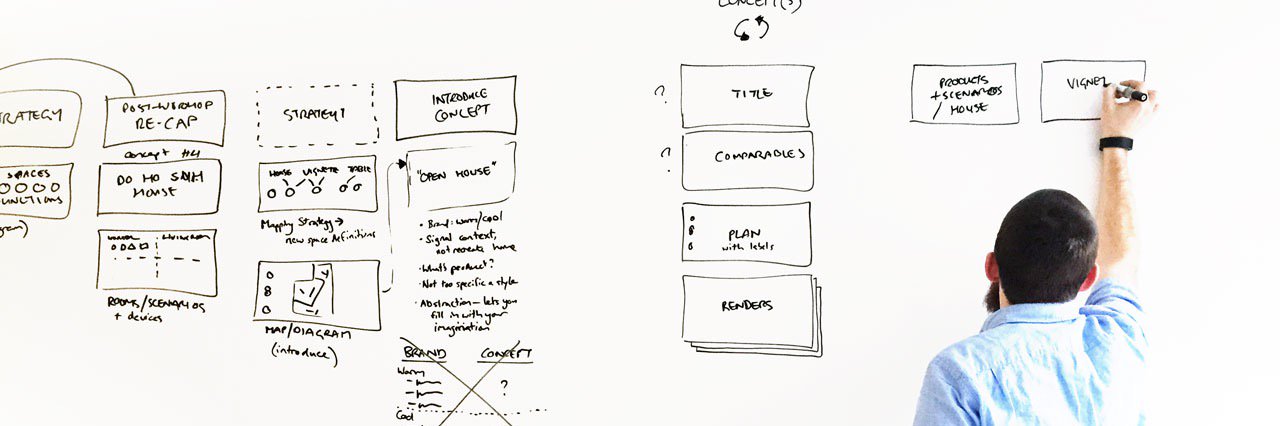 CONCEPT(S)
RATEGY
POST-WORKSHOP
RE-CAP
STRATEGY
INTRODUCE
CONCEPT
?
TITLE
PRODUCTS
+ SCENARIOS
/ HOUSE
VIGNE
SPACES
UNCTIONS
gram)
CONCEPT
DO HO SUH
HOUSE
HOUSE VIGNETTE TABLE
Mapping Strategy →
new space definitions
"OPEN HOUSE"
?
COMPARABLES
ROOMS/SCENARIOS
+ devices
MAP/DIAGRAM
(introduce)
• Brand: warm/cool
• Signal context,
not recreate home
• What's product?
• Not too specific a style
• Abstraction — lets you
fill in with your
imagination
PLAN
with labels
RENDERS
BRAND CONCEPT
Warm
?
Cool